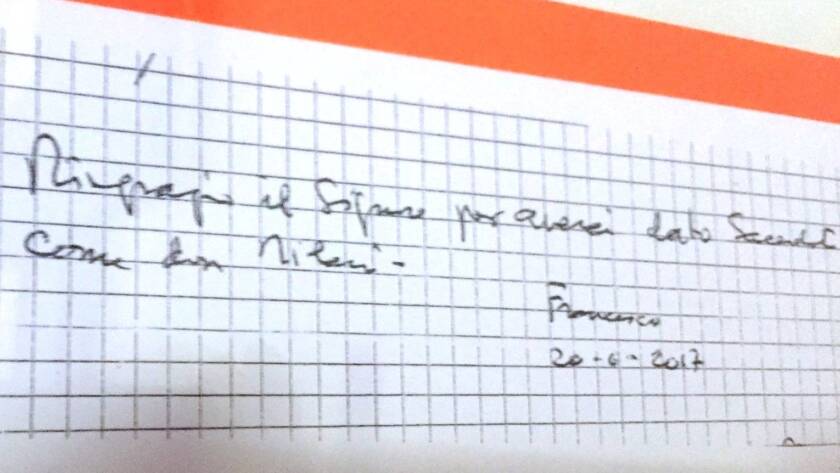 Ringrazio il Signore per averci dato
come don Milani -
Francesco
20-6-2017